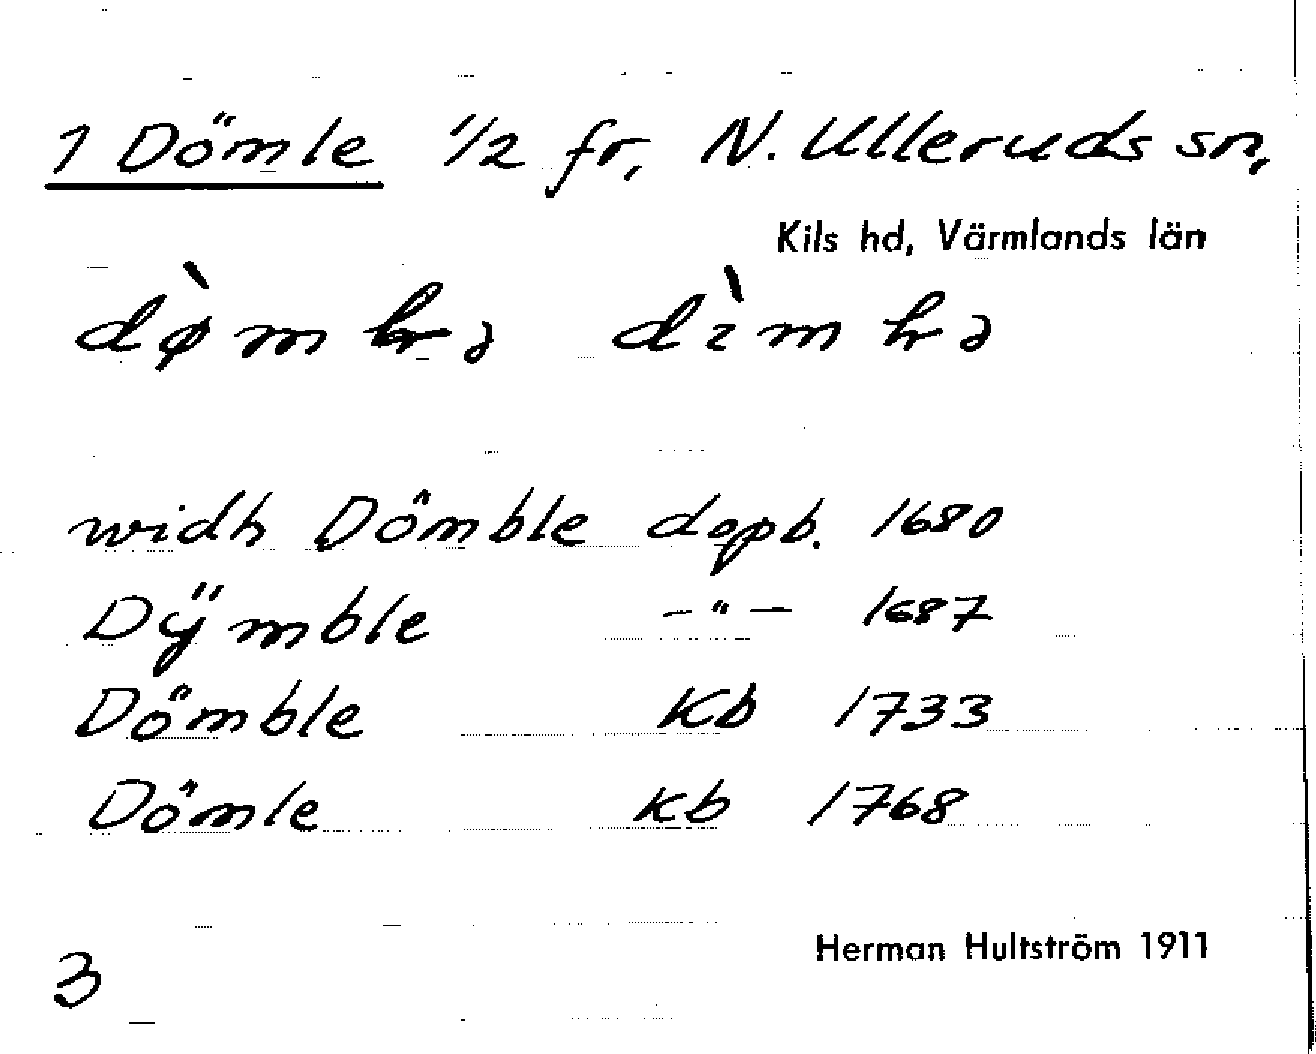 1 Dömle 1/2 fr, N. Ulleruds sn,
Kils hd, Värmlands län
widh Dömble dopb. 1680
Dÿmble —"— 1687
Dömble Kb 1733
Dömle Kb 1768
Herman Hultström 1911
3